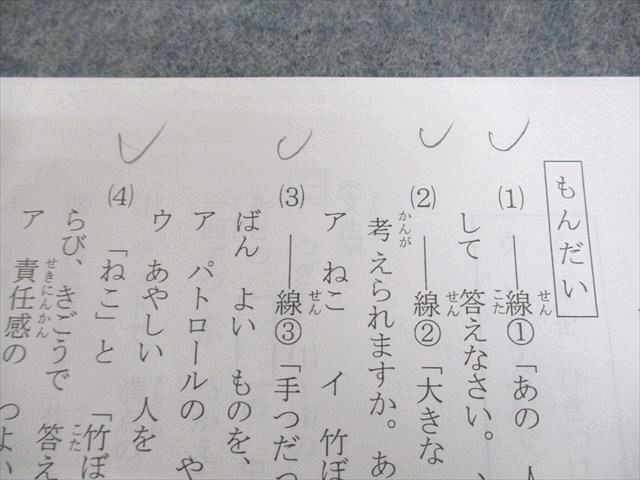 もんだい
(1) ――線①「あの 人
して 答えなさい。
(2) ――線②「大きな
考えられますか。 あ
ア ねこ イ 竹ぼ
(3) ――線③「手つだっ
ばん よい ものを、
ア パトロールの や
ウ あやしい 人を
(4) 「ねこ」と 「竹ぼ
らび、きごうで 答え
ア 責任感の つよい